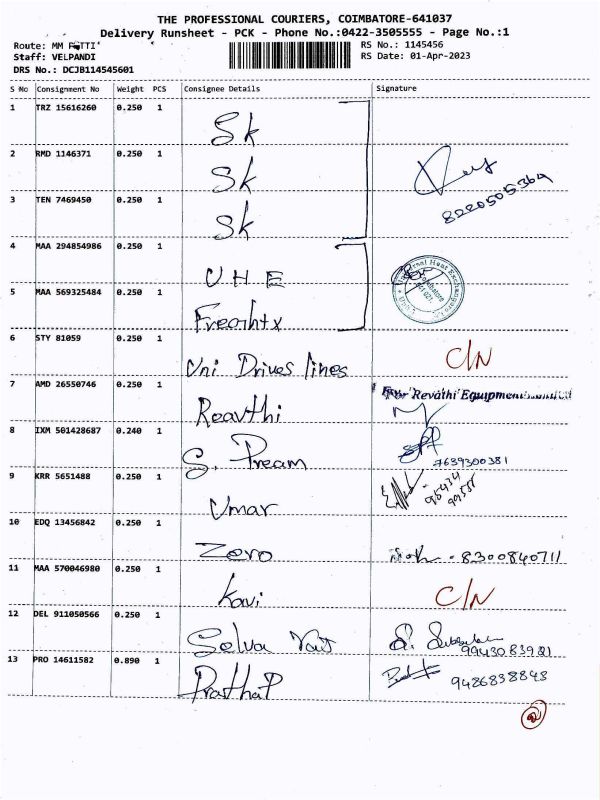 THE PROFESSIONAL COURIERS, COIMBATORE-641037
Delivery Runsheet - PCK - Phone No.:0422-3505555 - Page No.:1
Route: MM
Staff: VELPANDI
DRS No.: DCJB114545601
RS No.: 1145456
RS Date: 01-Apr-2023
S No Consignment No Weight PCS Consignee Details Signature
1 TRZ 15616260 0.250 1 Sk
2 RMD 1146371 0.250 1 Sk
8220505369
3 TEN 7469450 0.250 1 Sk
4 MAA 294854986 0.250 1 U H E
5 MAA 569325484 0.250 1
6 STY 81059 0.250 1 Uni Drives lines C/N
7 AMD 26550746 0.250 1 Reavthi For Revathi Equipment Limited
8 IXM 501428687 0.240 1 S. Pream 7639300381
9 KRR 5651488 0.250 1 Umar
10 EDQ 13456842 0.250 1 Zero 8300840711
11 MAA 570046980 0.250 1 Kavi C/N
12 DEL 911050566 0.250 1 Selva 9943083921
13 PRO 14611582 0.890 1 Prathap 9486838848